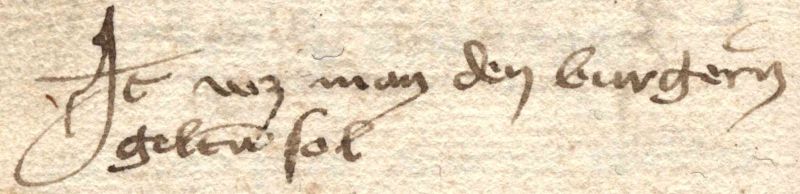 It waz man den burgern
gelten sol